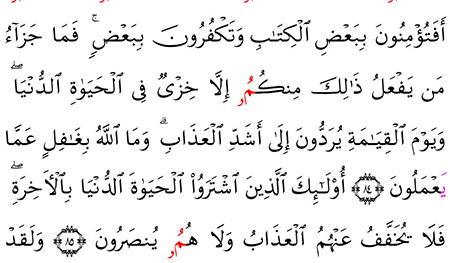 أَفَتُؤۡمِنُونَ بِبَعۡضِ ٱلۡكِتَٰبِ وَتَكۡفُرُونَ بِبَعۡضٖۚ فَمَا جَزَآءُ
مَن يَفۡعَلُ ذَٰلِكَ مِنكُمُۥ إِلَّا خِزۡيٞ فِي ٱلۡحَيَوٰةِ ٱلدُّنۡيَاۖ
وَيَوۡمَ ٱلۡقِيَٰمَةِ يُرَدُّونَ إِلَىٰٓ أَشَدِّ ٱلۡعَذَابِۗ وَمَا ٱللَّهُ بِغَٰفِلٍ عَمَّا
يَعۡمَلُونَ ٨٤ أُوْلَٰٓئِكَ ٱلَّذِينَ ٱشۡتَرَوُاْ ٱلۡحَيَوٰةَ ٱلدُّنۡيَا بِٱلۡأٓخِرَةِۖ
فَلَا يُخَفَّفُ عَنۡهُمُ ٱلۡعَذَابُ وَلَا هُمُۥ يُنصَرُونَ ٨٥ وَلَقَدۡ